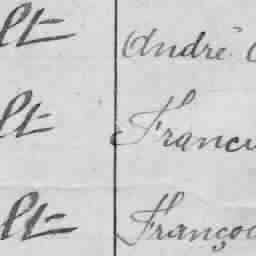 lt André
lt Franci
lt Franço